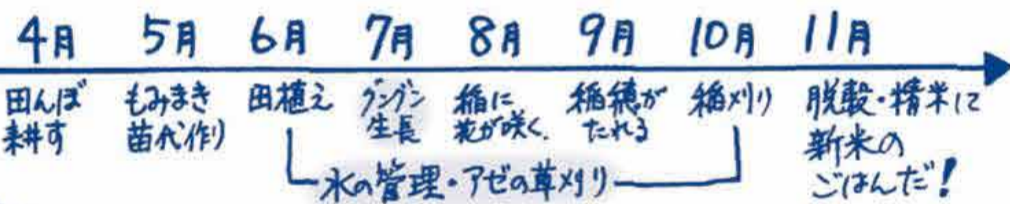 4月 5月 6月 7月 8月 9月 10月 11月
田んぼ
耕す
もみまき
苗代作り
田植え
グングン
生長
稲に
花が咲く。
稲穂が
たれる
稲刈り
脱穀・精米に
新米の
ごはんだ!
水の管理・アゼの草刈り